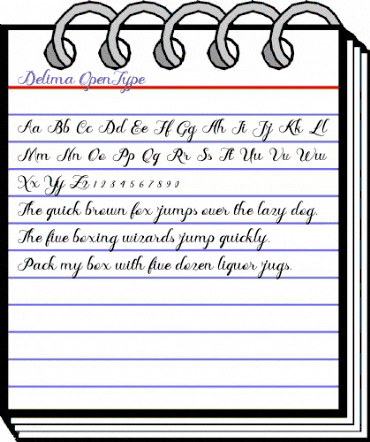 Delima OpenType
Aa Bb Cc Dd Ee Ff Gg Hh Ii Jj Kk Ll
Mm Nn Oo Pp Qq Rr Ss Tt Uu Vv Ww
Xx Yy Zz 1 2 3 4 5 6 7 8 9 0
The quick brown fox jumps over the lazy dog.
The five boxing wizards jump quickly.
Pack my box with five dozen liquor jugs.